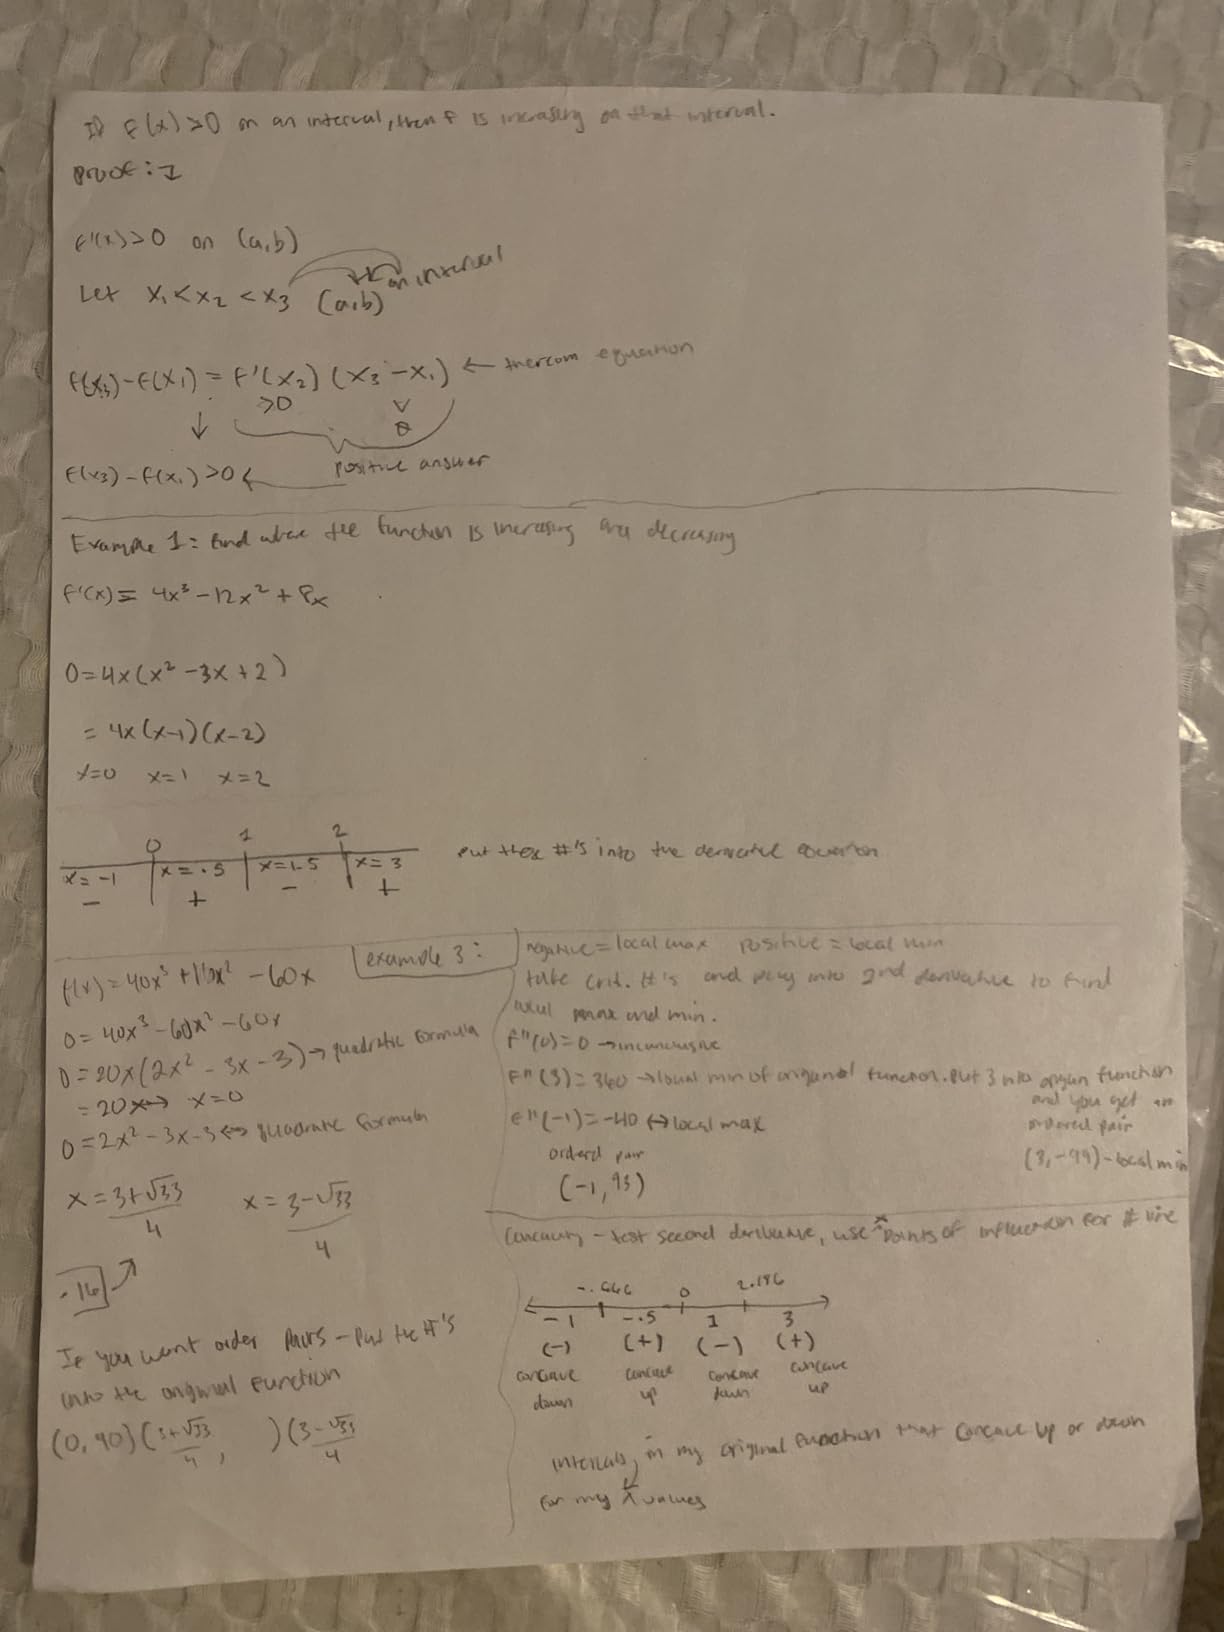 If f(x) > 0 on an interval, then f is increasing on that interval.
Proof: 1
f'(x) > 0 on (a,b)
Let x₁ < x₂ < x₃ (a,b)
an interval
f(x₃) - f(x₁) = f'(x₂) (x₃ - x₁) ← thercom equation
>0
∨
0
↓
positive answer
f(x₃) - f(x₁) > 0 ←
Example 1: find where the function is increasing and decreasing
f'(x) = 4x³ - 12x² + 8x
0 = 4x(x² - 3x + 2)
= 4x(x-1)(x-2)
x=0 x=1 x=2
0 1 2
x = -1 x = .5 x = 1.5 x = 3
- + - +
put these #'s into the derivative equation
example 3:
f(x) = 40x³ - 60x
0 = 40x³ - 60x² - 60x
0 = 20x(2x² - 3x - 3) → quadratic formula
= 20x → x=0
0 = 2x² - 3x - 3 ↔ quadratic formula
x = 3+√33 / 4 x = 3-√33 / 4
If you want order pairs - put the #'s
into the original function
(0, 90) (3+√33 / 4, ) (3-√33 / 4
negative = local max positive = local min
take crit. #'s and plug into 2nd derivative to find
local max and min.
f''(0) = 0 → inconclusive
f''(3) = 360 → local min of original function. Put 3 into function
and you get an
ordered pair
(3, -99) - local min
f''(-1) = -40 ↔ local max
orderd pair
(-1, 93)
Concavity - test second derivative, use x points of for # line
0 2.186
-1 -.5 1 3
(-) (+) (-) (+)
concave concave concave concave
down up down up
Intervals in my original function that concave up or down
for my x values